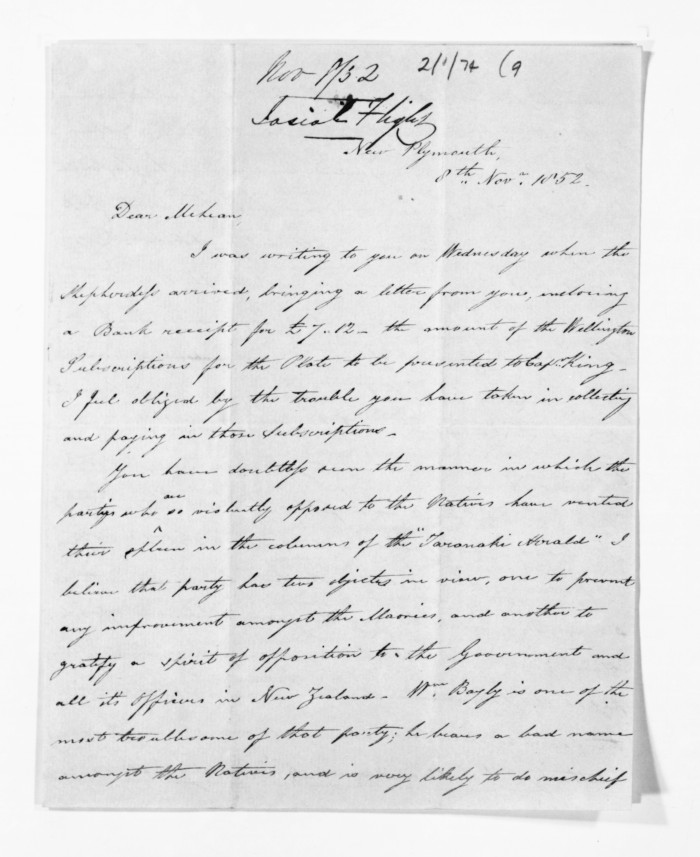 Nov 8/52 2/1/74 (9
Josiah Flight
New Plymouth,
8th Novr. 1852.
Dear McLean,
I was writing to you on Wednesday when the
Shepherdess arrived, bringing a letter from you, inclosing
a Bank receipt for £7.12 – the amount of the Wellington
Subscriptions for the Plate to be presented to Capn. King –
I feel obliged by the trouble you have taken in collecting
and paying in those Subscriptions –
You have doubtless seen the manner in which the
partys who are so violently opposed to the Natives have vented
their spleen in the columns of the "Taranaki Herald" I
believe that party has two objects in view, one to prevent
any improvement amongst the Maories, and another to
gratify a spirit of opposition to the Government and
all its Officers in New Zealand – Wm. Bayly is one of the
most troublesome of that party; he bears a bad name
amongst the Natives, and is very likely to do mischief